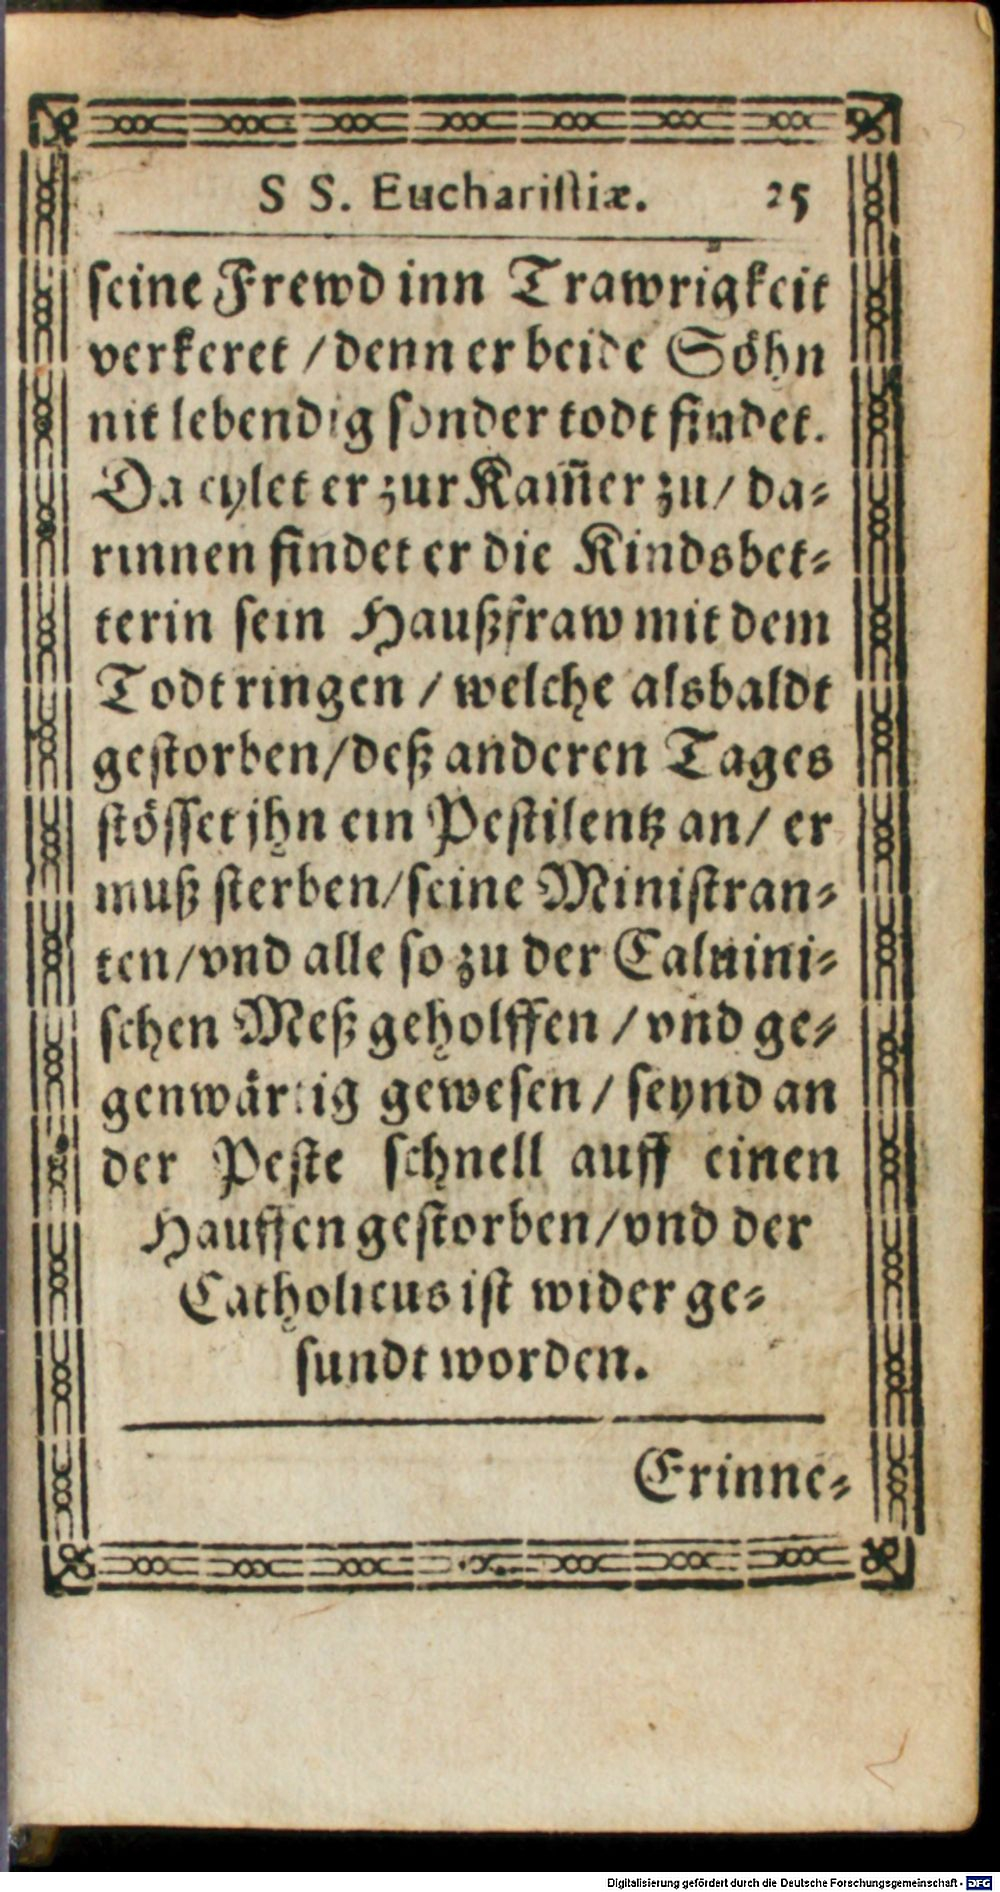 S S. Euchariſtiæ. 25
ſeine Frewd inn Trawrigkeit
verkeret / denn er beide Söhn
nit lebendig ſonder todt findet.
Da eylet er zur Kam̃er zu / da-
rinnen findet er die Kindsbet-
terin ſein Haußfraw mit dem
Todt ringen / welche alsbaldt
geſtorben / deß anderen Tages
ſtöſſet jhn ein Peſtilentz an / er
muß ſterben / ſeine Miniſtran-
ten / vnd alle ſo zu der Caluini-
ſchen Meß geholffen / vnd ge-
genwärtig geweſen / ſeynd an
der Peſte ſchnell auff einen
Hauffen geſtorben / vnd der
Catholicus iſt wider ge-
ſundt worden.
Erinne-
Digitalisierung gefördert durch die Deutsche Forschungsgemeinschaft - DFG